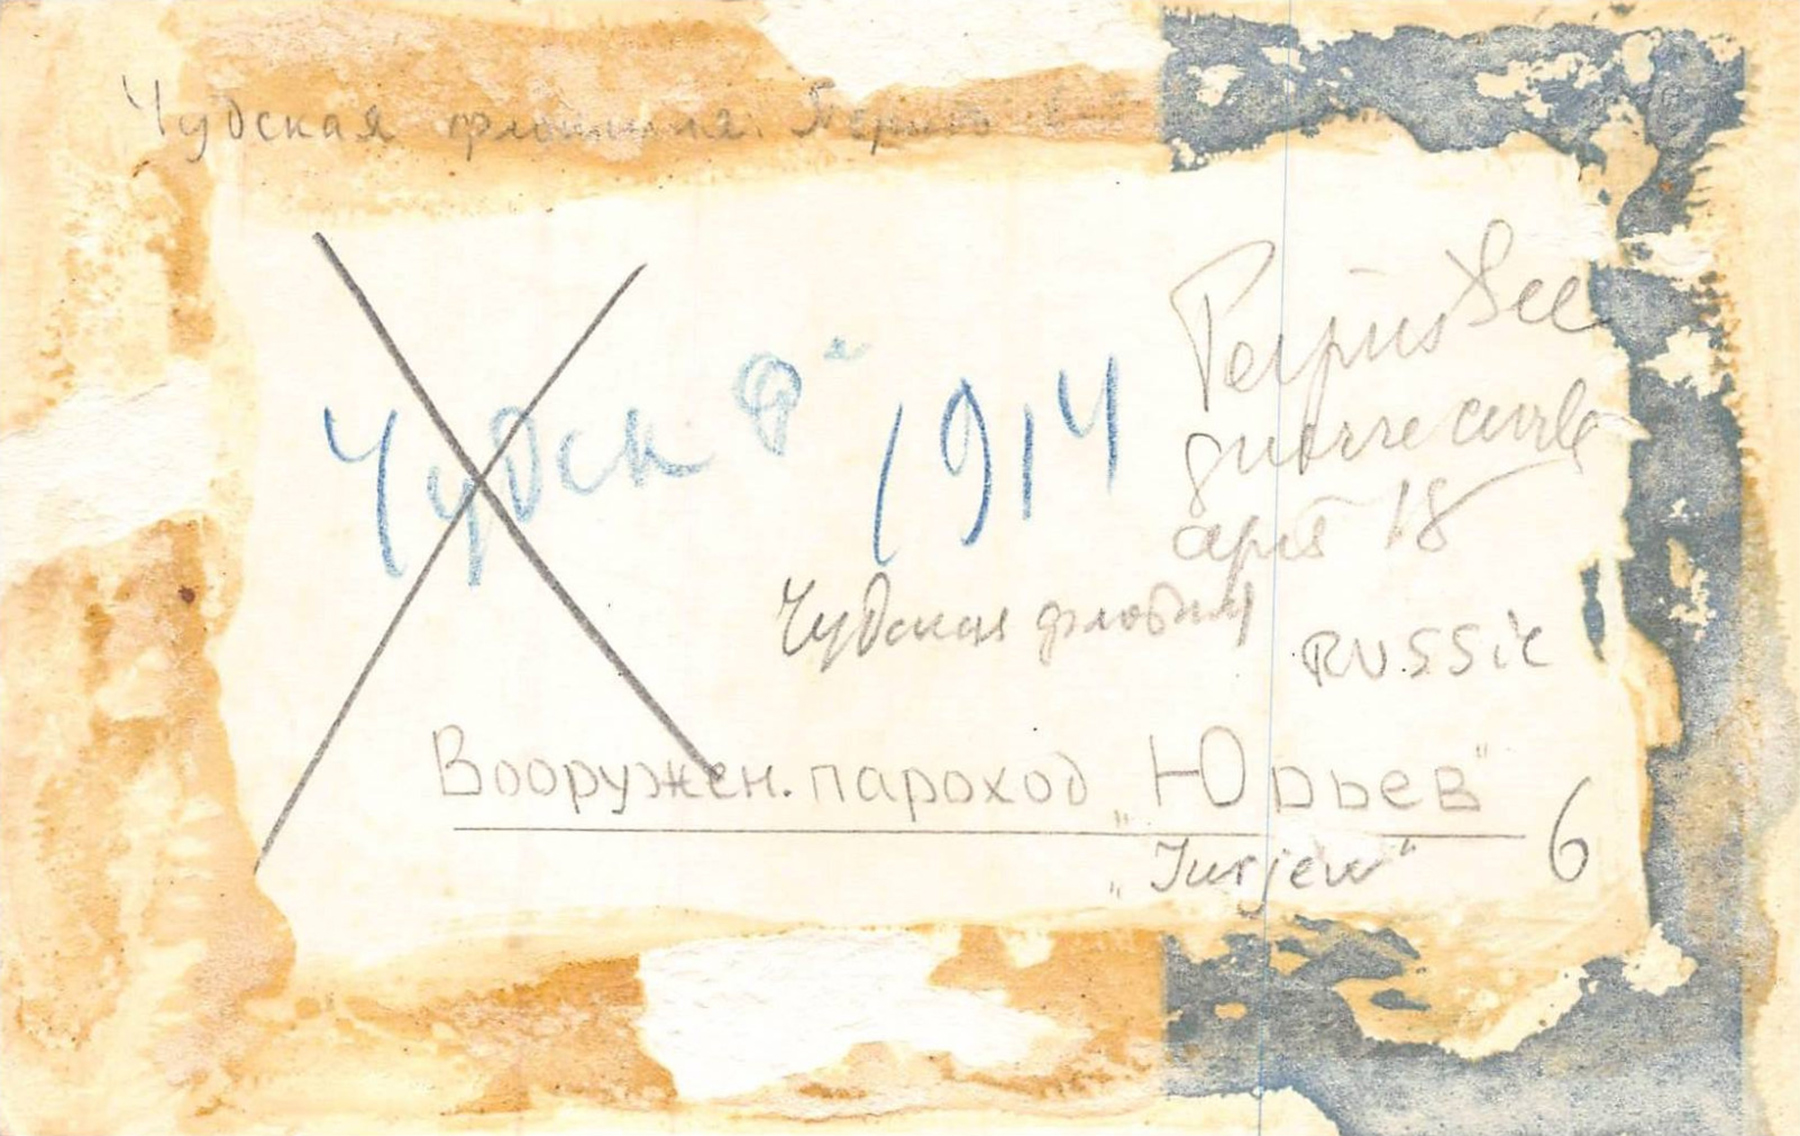 Чудская флотилия. Период
Чудск Ф" 1914
Peipus See
april 18
Чудская флотил
RUSSIE
Вооружен. пароход „Юрьев"
„Jurjew"
6